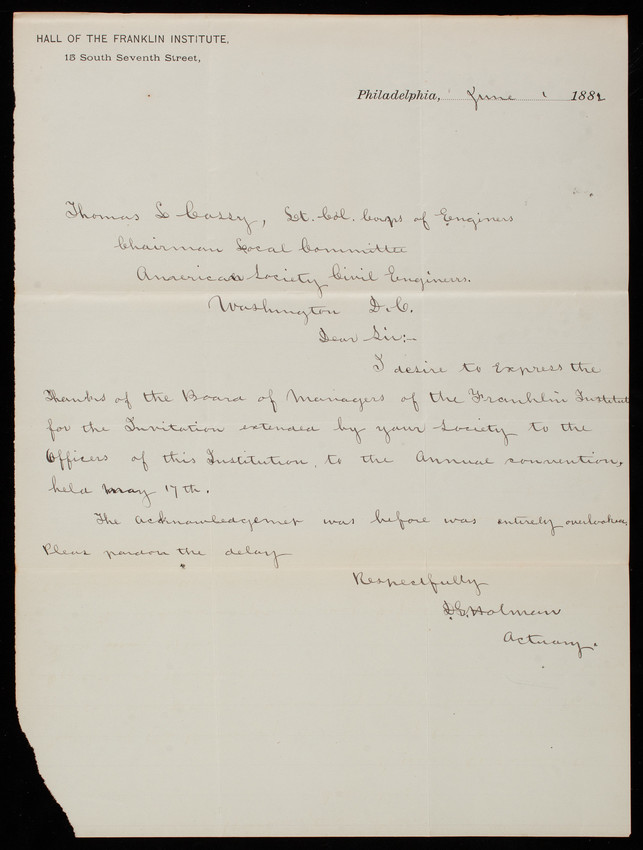 HALL OF THE FRANKLIN INSTITUTE,
15 South Seventh Street,
Philadelphia, June 1 1882
Thomas L Cassy, Lt. Col. Corps of Enginers
Chairman Local Committee
American Society Civil Engineers.
Washington D.C.
Dear Sir:-
I desire to express the
Thanks of the Board of Managers of the Franklin Institut
for the Invitation extended by your Society to the
Officers of this Institution, to the Annual convention,
held May 17th.
The acknowledgement was before was entirely overlooked,
Pleas pardon the delay
Respectfully
Holman
Actuary.